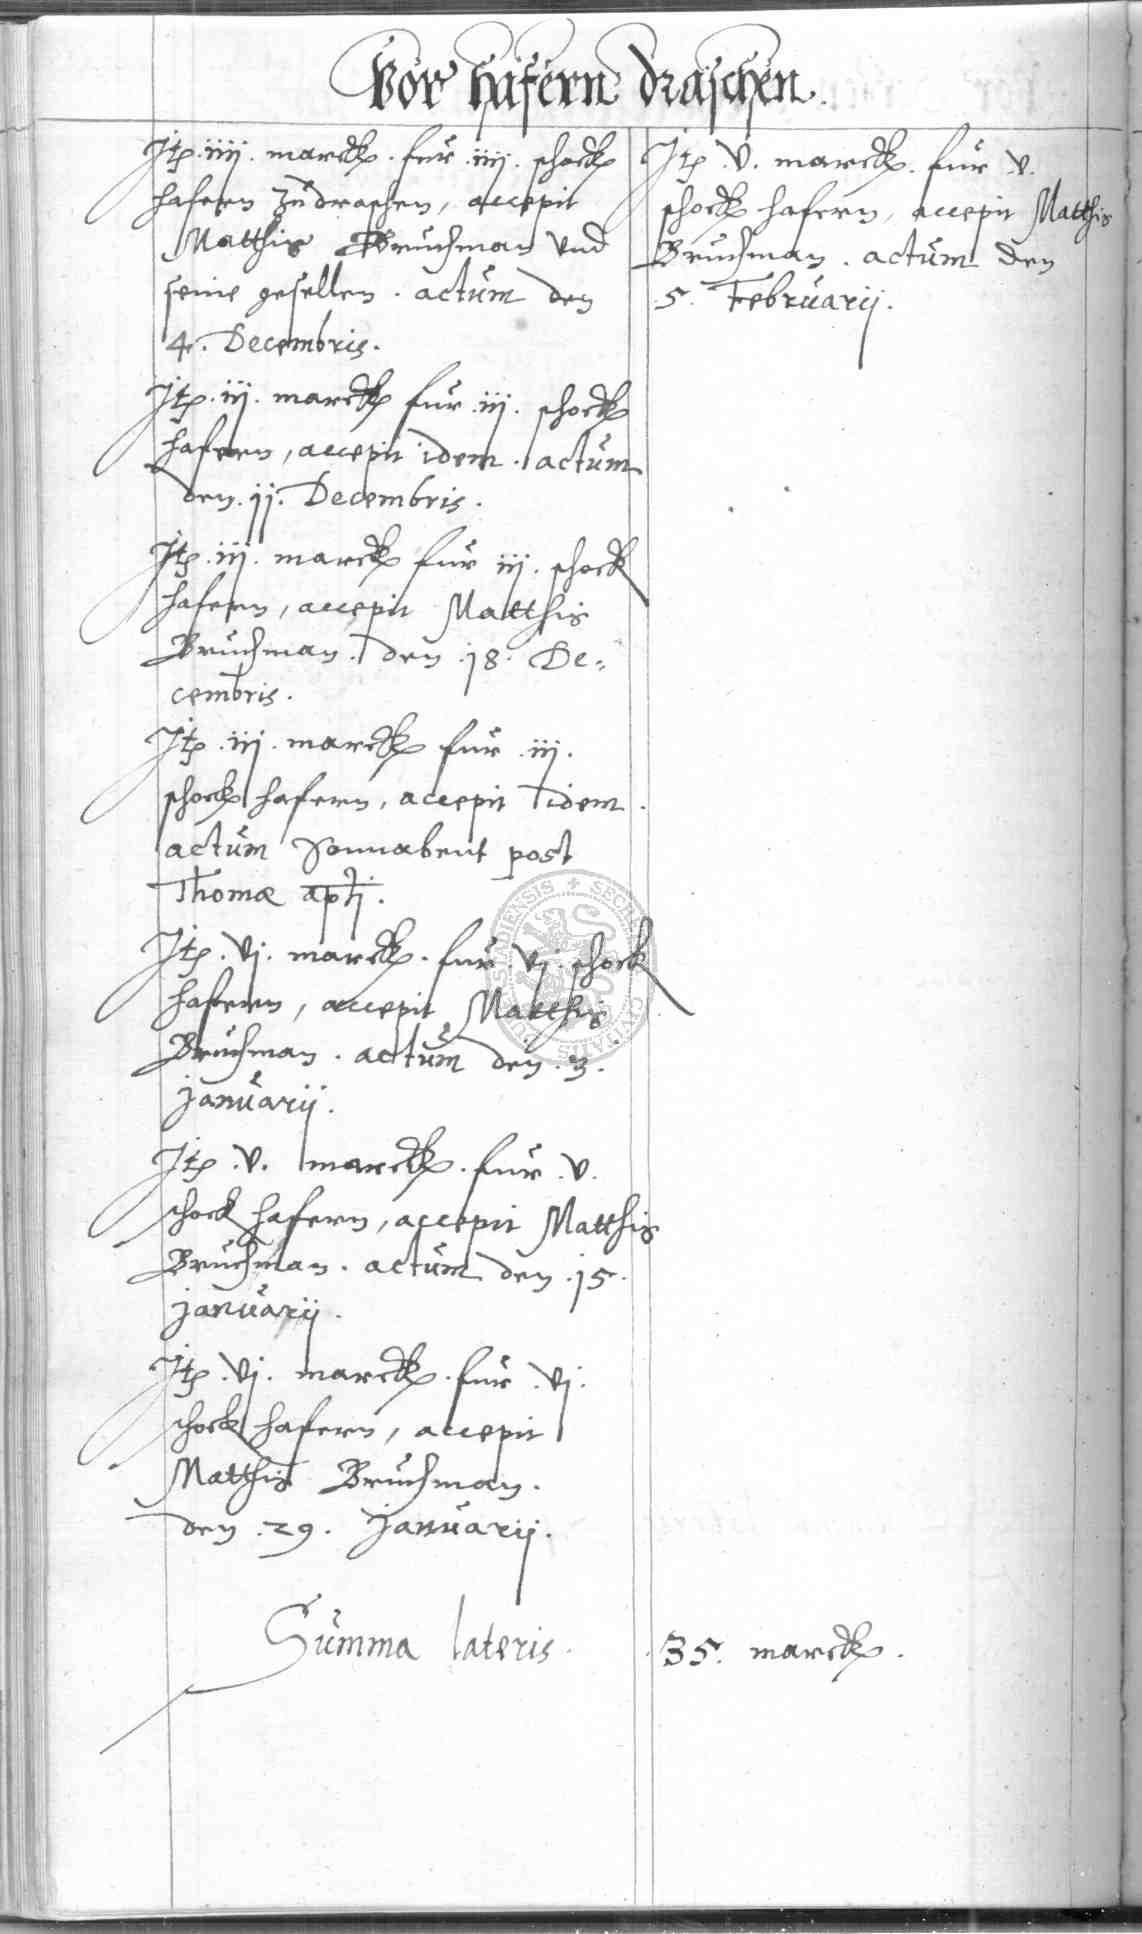 Vor hafern draschen.
Itp. iiij. marck. fur. iiij. schock
hafern zudraschen, accepit
Matthis Bruchman vnd
seine gesellen. actum den
4. Decembris.
Itp. iij. marck fur. iij. schock
hafern, accepit idem. actum
den. ij. Decembris.
Itp. iij. marck fur iij. schock
hafern, accepit Matthis
Bruchman. den. 18. De=
cembris.
Itp. iij. marck fur. iij.
schock hafern, accepit idem.
actum Sonnabent post
Thomæ aptj.
Itp. vj. marck. fur. vj. schock
hafern, accepit Matthis
Bruchman. actum den. 3.
januarij.
Itp. v. marck. fur. v.
schock hafern, accepit Matthis
Bruchman. actum den. 15.
januarij.
Itp. vj. marck. fur. vj.
schock hafern, accepit
Matthis Bruchman.
den. 29. januarij.
Itp. v. marck. fur. v.
schock hafern, accepit Matthis
Bruchman. actum den
5. Februarij.
Summa lateris. 35. marck.
CIVITATIS